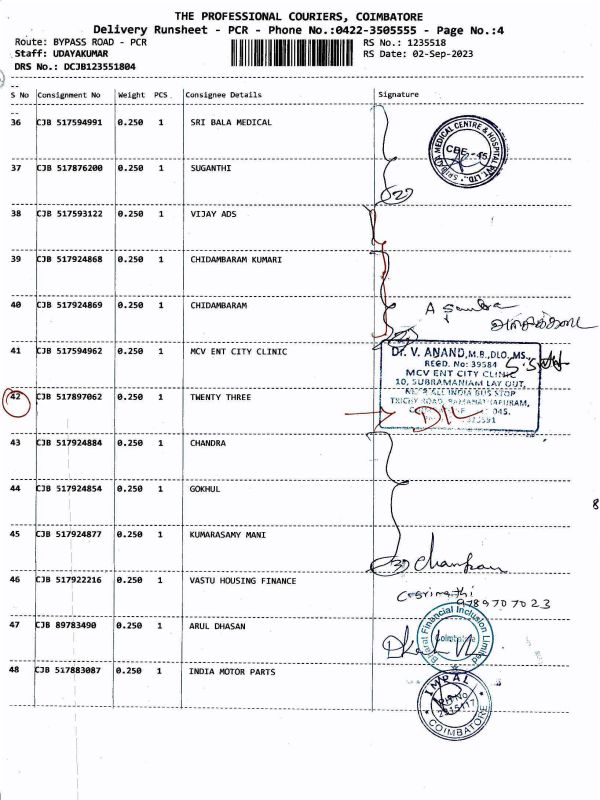 THE PROFESSIONAL COURIERS, COIMBATORE
Delivery Runsheet - PCR - Phone No.:0422-3505555 - Page No.:4
Route: BYPASS ROAD - PCR RS No.: 1235518
Staff: UDAYAKUMAR RS Date: 02-Sep-2023
DRS No.: DCJB123551804
S No Consignment No Weight PCS Consignee Details Signature
36 CJB 517594991 0.250 1 SRI BALA MEDICAL
37 CJB 517876200 0.250 1 SUGANTHI
38 CJB 517593122 0.250 1 VIJAY ADS
39 CJB 517924868 0.250 1 CHIDAMBARAM KUMARI
40 CJB 517924869 0.250 1 CHIDAMBARAM
41 CJB 517594962 0.250 1 MCV ENT CITY CLINIC
42 CJB 517897062 0.250 1 TWENTY THREE
43 CJB 517924884 0.250 1 CHANDRA
44 CJB 517924854 0.250 1 GOKHUL
45 CJB 517924877 0.250 1 KUMARASAMY MANI
46 CJB 517922216 0.250 1 VASTU HOUSING FINANCE
47 CJB 89783490 0.250 1 ARUL DHASAN
48 CJB 517883087 0.250 1 INDIA MOTOR PARTS
MEDICAL CENTRE & HOSPITAL PVT. LTD.
CBE - 45
Dr. V. ANAND, M.B., DLO, MS.,
REGD. No: 39584
MCV ENT CITY CLINIC
10, SUBRAMANIAM LAY OUT,
ALL INDIA BUS STOP
TRICHY ROAD,
9789707023
Financial Inclusion Limited
Coimbatore
IMPAL
COIMBATORE
8